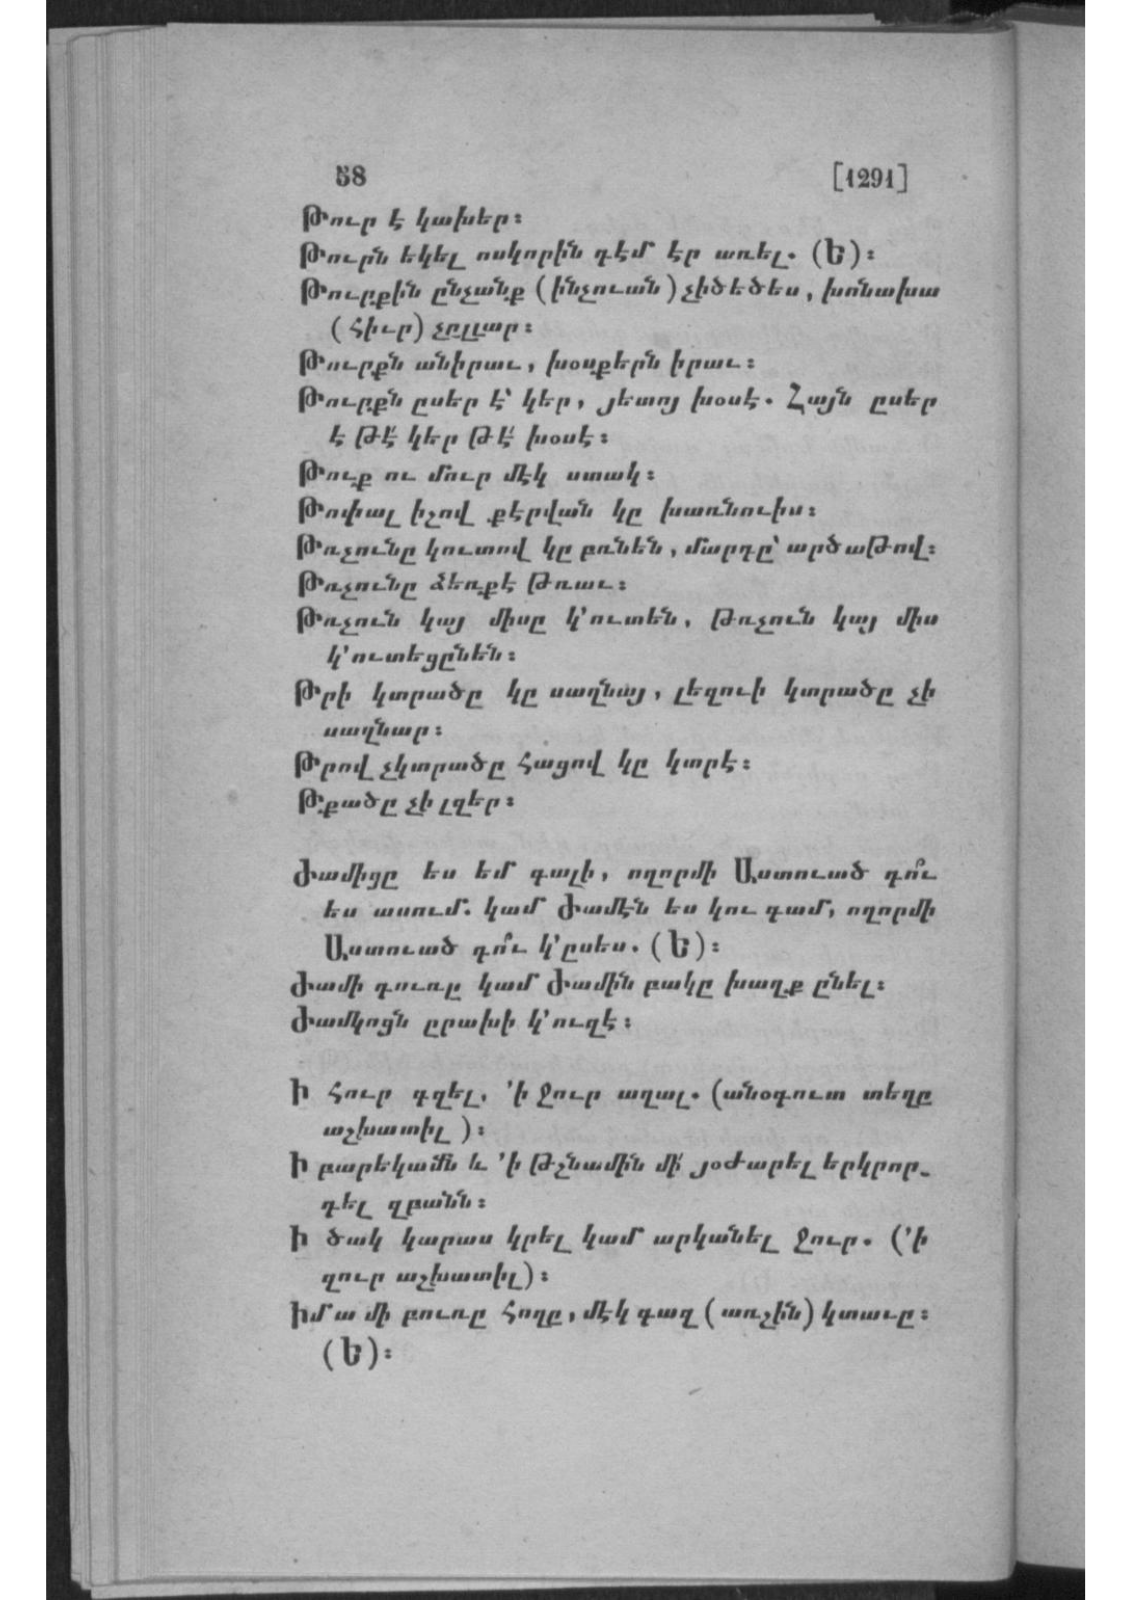 58 [1291]
Թուր է կախեր։
Թուրն եկել ոսկորին դէմ էր առել. (Ե)։
Թուրքին ընչանք (ինչուան) չիծեծես, խոնախա
(հիւր) չըլլար։
Թուրքն անիրաւ, խօսքերն իրաւ։
Թուրքն ըսեր է՝ կեր, յետոյ խօսէ. Հայն ըսեր
է թէ՛ կեր թէ՛ խօսէ։
Թուք ու մուր մէկ ստակ։
Թոփալ իշով քէրվան կը խառնուիս։
Թռչունը կուտով կը բռնեն, մարդը՝ արծաթով։
Թռչունը ձեռքէ թռաւ։
Թռչուն կայ միսը կ՚ուտեն, թռչուն կայ միս
կ՚ուտեցընեն։
Թրի կտրածը կը սաղնայ, լեզուի կտրածը չի
սաղնար։
Թրով չկտրածը հացով կը կտրէ։
Թքածը չի լզեր։
Ժամիցը ես եմ գալի, ողորմի Աստուած դո՞ւ
ես ասում. կամ Ժամէն ես կու գամ, ողորմի
Աստուած դո՞ւ կ՚ըսես. (Ե)։
Ժամի դուռը կամ Ժամին բակը խաղք ընել։
Ժամկոցն ըրախի կ՚ուզէ։
Ի հուր գզել, ՚ի ջուր աղալ. (անօգուտ տեղը
աշխատիլ)։
Ի բարեկամն և ՚ի թշնամին մի՛ յօժարել երկրոր-
դել զբանն։
Ի ծակ կարաս կրել կամ արկանել ջուր. (՚ի
զուր աշխատիլ)։
Իմ ա մի բուռը հողը, մէկ գազ (առշին) կտաւը։
(Ե)։